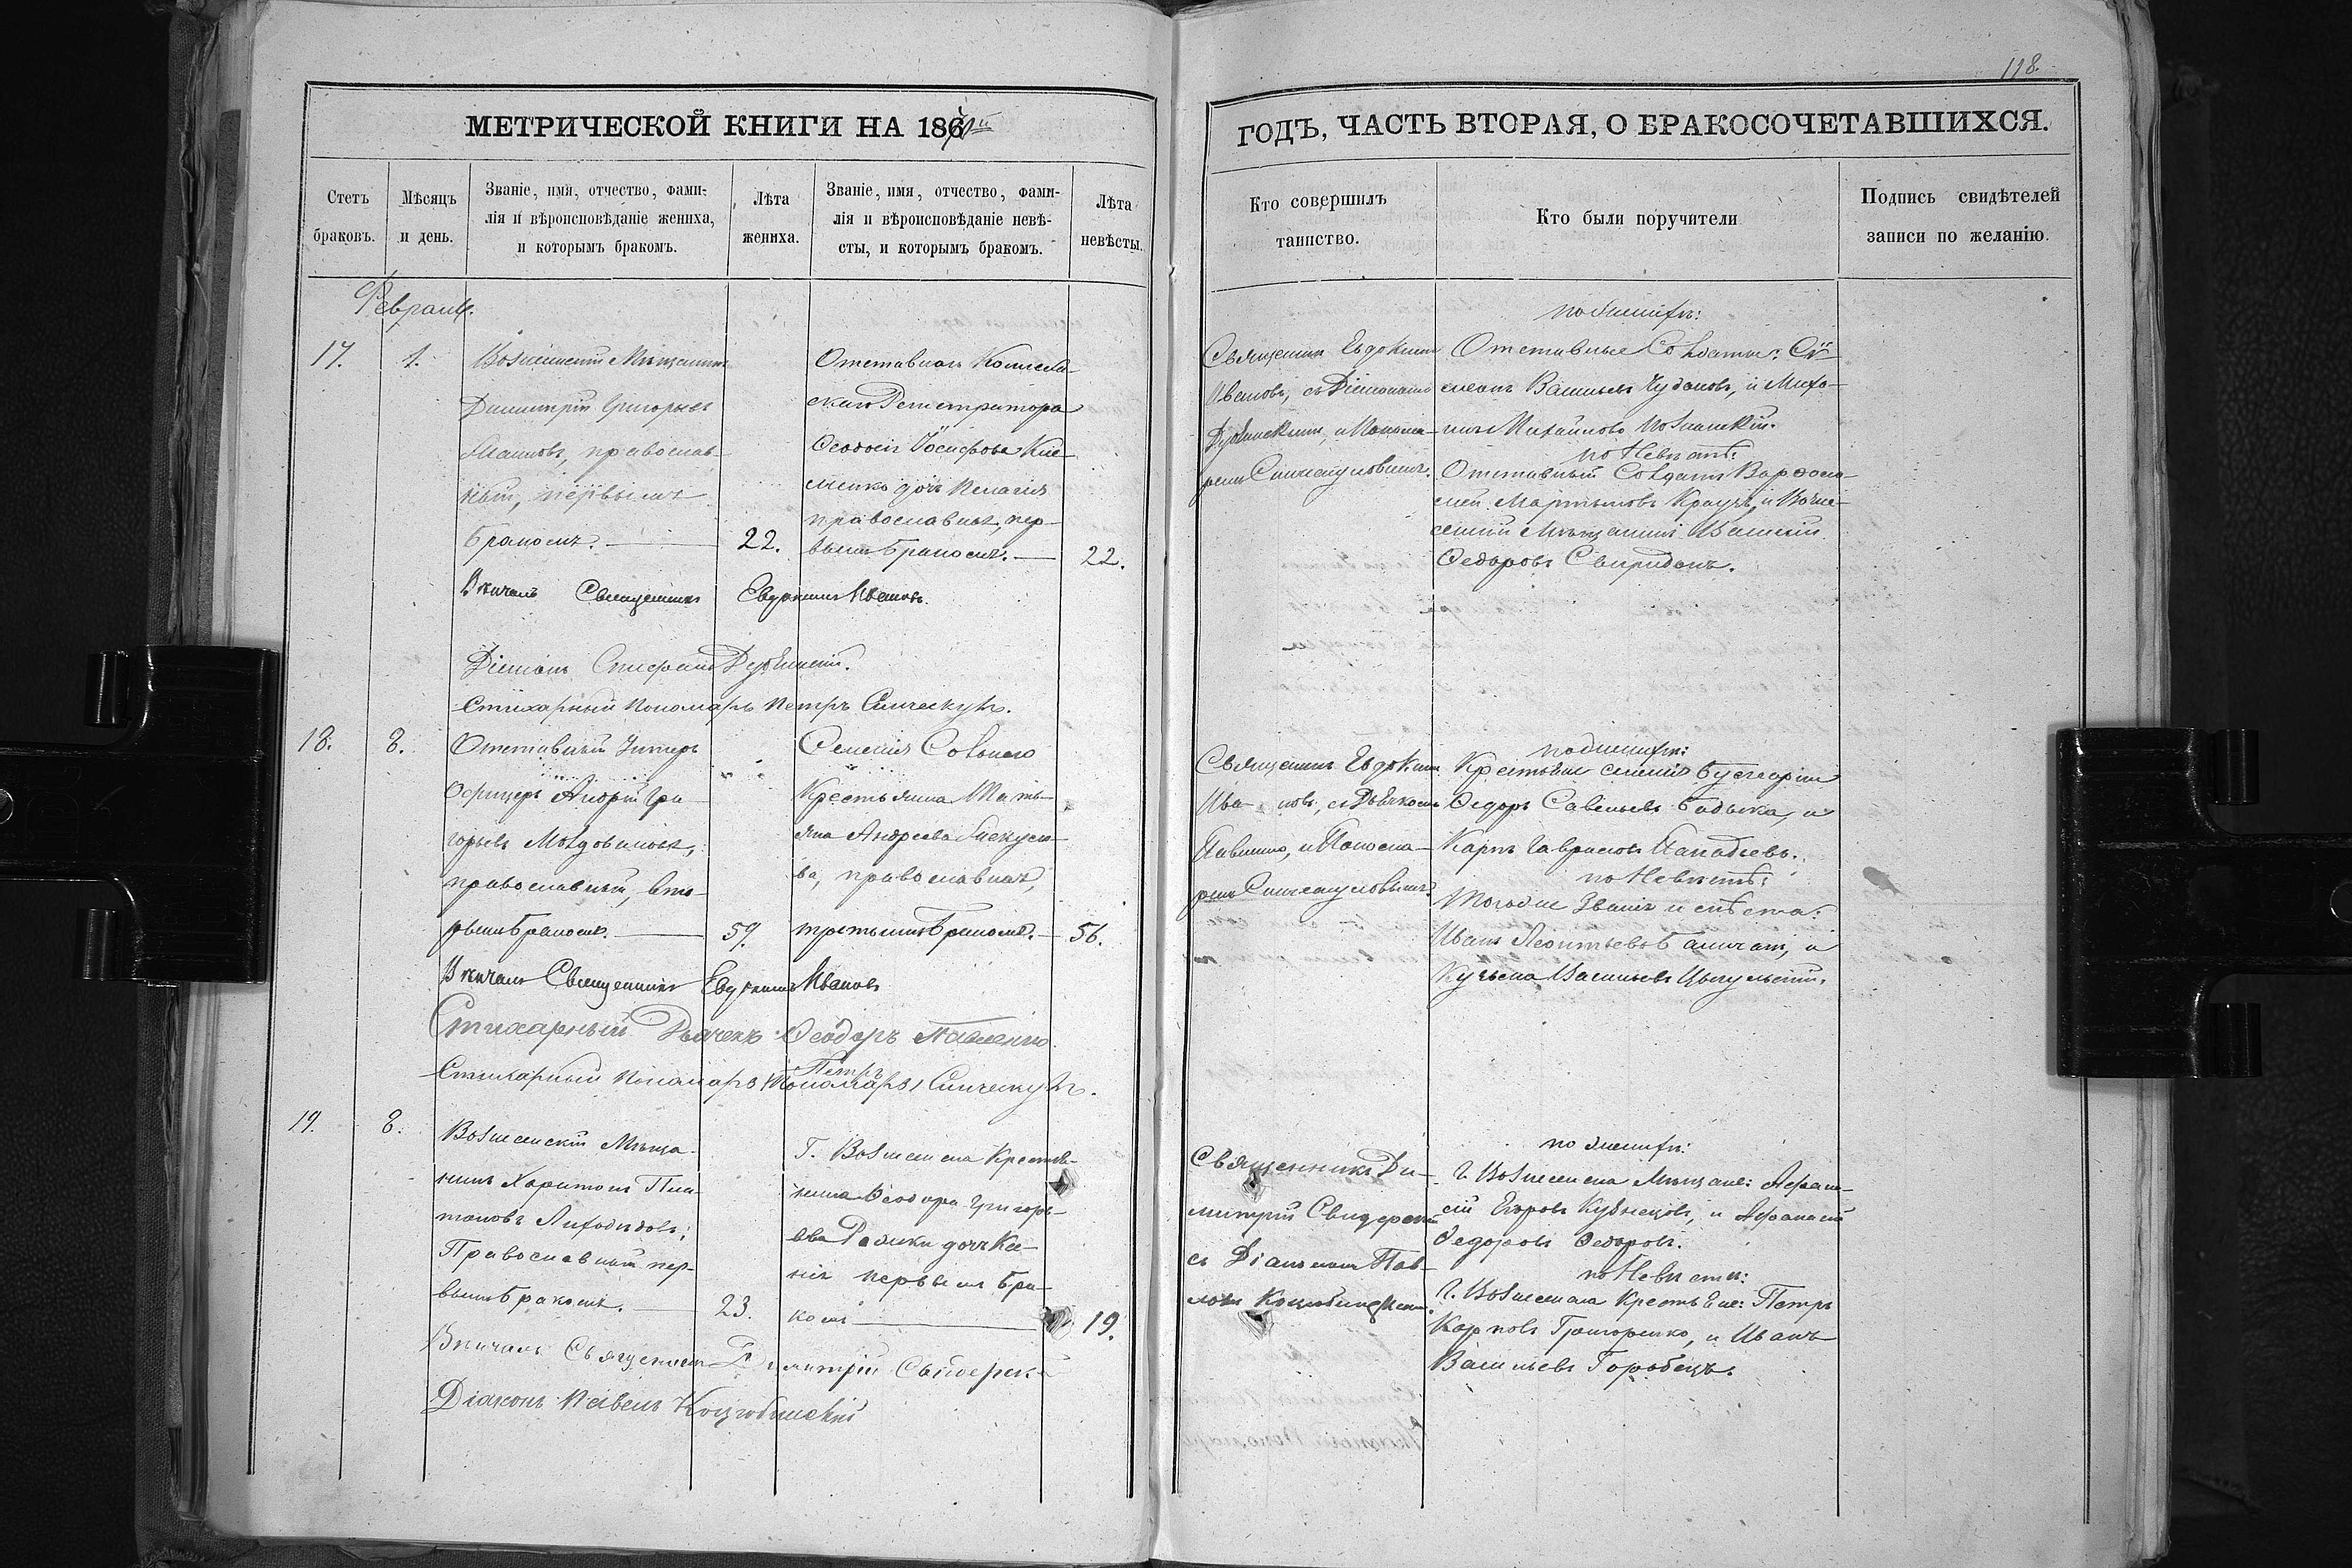 118.
МЕТРИЧЕСКОЙ КНИГИ НА 186
ГОДЪ, ЧАСТЬ ВТОРАЯ, О БРАКОСОЧЕТАВШИХСЯ.
Счетъ
браковъ.
Мѣсяцъ
и день.
Званіе, имя, отчество, фами-
лія и вѣроисповѣданіе жениха,
и которымъ бракомъ.
Лѣта
жениха.
Званіе, имя, отчество, фами-
лія и вѣроисповѣданіе невѣ-
сты, и которымъ бракомъ.
Лѣта
невѣсты.
Кто совершилъ
таинство.
Кто были поручители
Подпись свидѣтелей
записи по желанію.
Февраль.
17.
1.
Вознесенскій Мѣщанинъ
Димитрій Григорьевъ
православ-
ный, первымъ
бракомъ.
22.
Отставнаго Коллеж-
скаго Регистратора
Феодосія Іосифова
дочь Пелагія
православная, пер-
вымъ бракомъ.
22.
Священникъ Евдокимъ
Ивановъ, съ Діакономъ
и Понома-
ремъ
по женихѣ:
Отставные Солдаты:
Васильевъ и Миха-
илъ Михайловъ
по Невѣстѣ:
Отставный Солдатъ Варфоло-
мей Мартыновъ и Возне-
сенскій Мѣщанинъ Василій
Федоровъ Свиридонъ.
Вѣнчалъ Священникъ Евдокимъ Ивановъ.
Діаконъ Стефанъ
Стихарный Пономарь Петръ
18.
8.
Отставный Унтеръ
Офицеръ Андрей Гри-
горьевъ Молдовановъ,
православный, вто-
рымъ бракомъ.
59.
Селенія Соваго
Крестьянка Матъ-
яна Андреева
ва, православная,
третьимъ бракомъ.
56.
Священникъ Евдокимъ
Ива-новъ, съ Дьячкомъ
Павленко, и Понома-
ремъ
по женихѣ:
Крестьяне селенія
Федоръ Савельевъ и
Карпъ Гавриловъ
по Невѣстѣ:
Того же Званія и мѣста:
Иванъ Леонтьевъ и
Кузьма Васильевъ
Вѣнчалъ Священникъ Евдокимъ Ивановъ
Стихарный Дьячекъ Феодоръ Павленко
Петръ
Стихарный Пономарь Пономарь
19.
8.
Вознесенскій Мѣща-
нинъ Харитонъ Пла-
тоновъ Лиходѣдовъ;
Православный пер-
вымъ бракомъ.
23.
Г. Вознесенска Крестья-
нина Феодора Григорь-
ева дочь Ксе-
нія первымъ бра-
комъ
19.
Священникъ Ди-
митрій Свидерскій
съ Діакономъ Пав-
ломъ Коцюбинскимъ.
по женихѣ:
Г. Вознесенска Мѣщане: Афана-
сій Егоровъ Кузнецовъ, и Афанасій
Федоровъ Федоровъ.
по Невѣстѣ:
Г. Вознесенска Крестьяне: Петръ
Карповъ Григоренко, и Иванъ
Васильевъ Горобецъ.
Вѣнчалъ Священникъ Димитрій Свидерскій
Діаконъ Павелъ Коцюбинскій